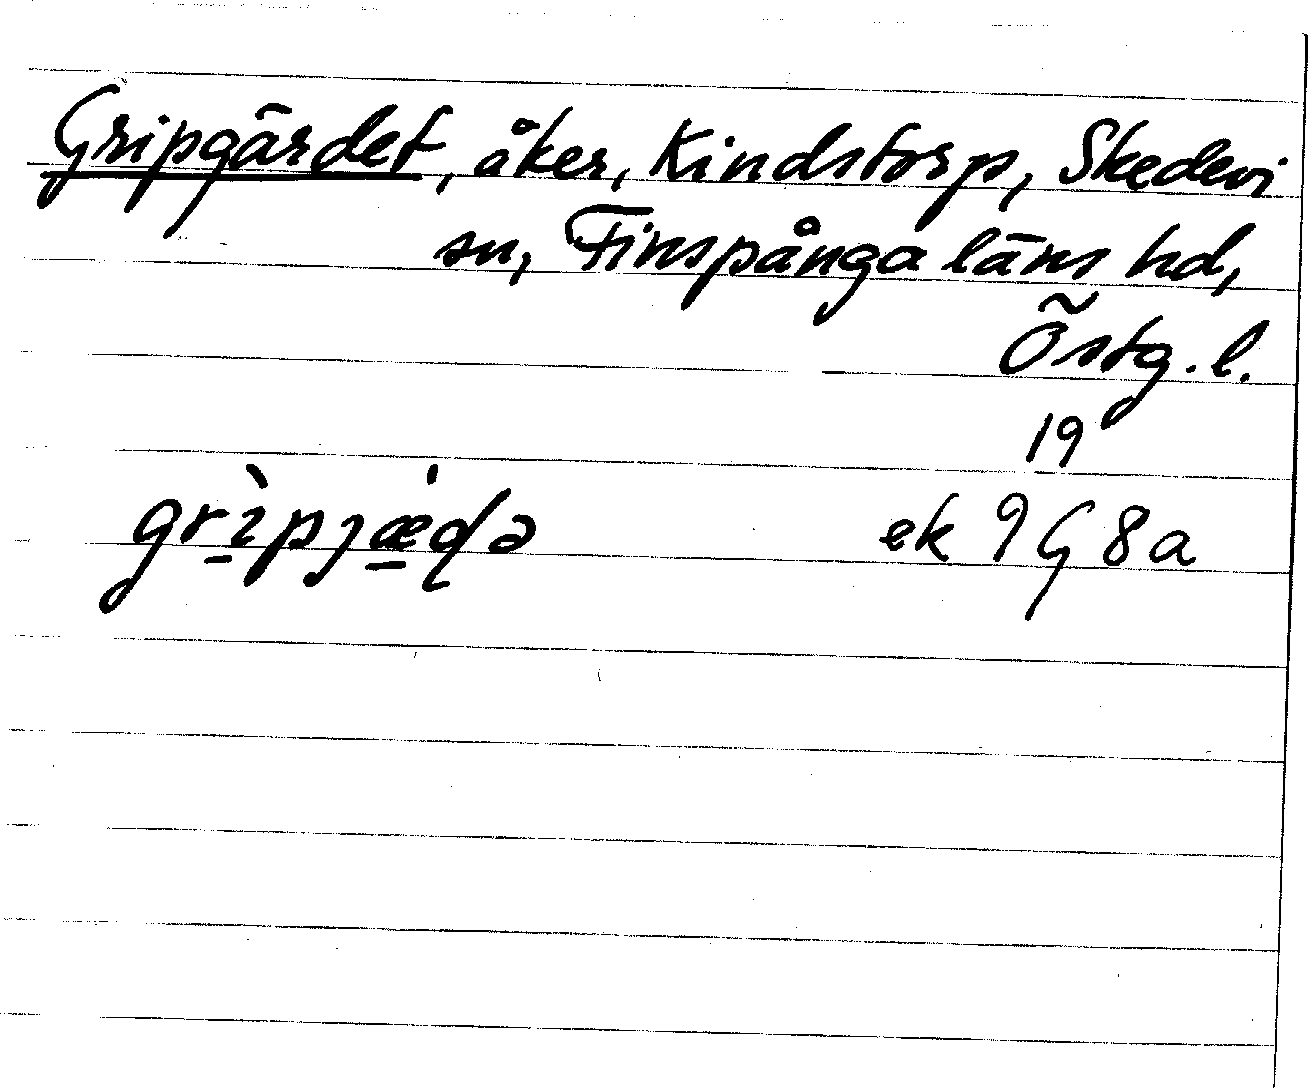 Gripgärdet, åker, Kindstorp, Skedevi
sn, Finspånga läns hd,
Östg.l.
19
grìpjæ̀ɖə ek 9G8a